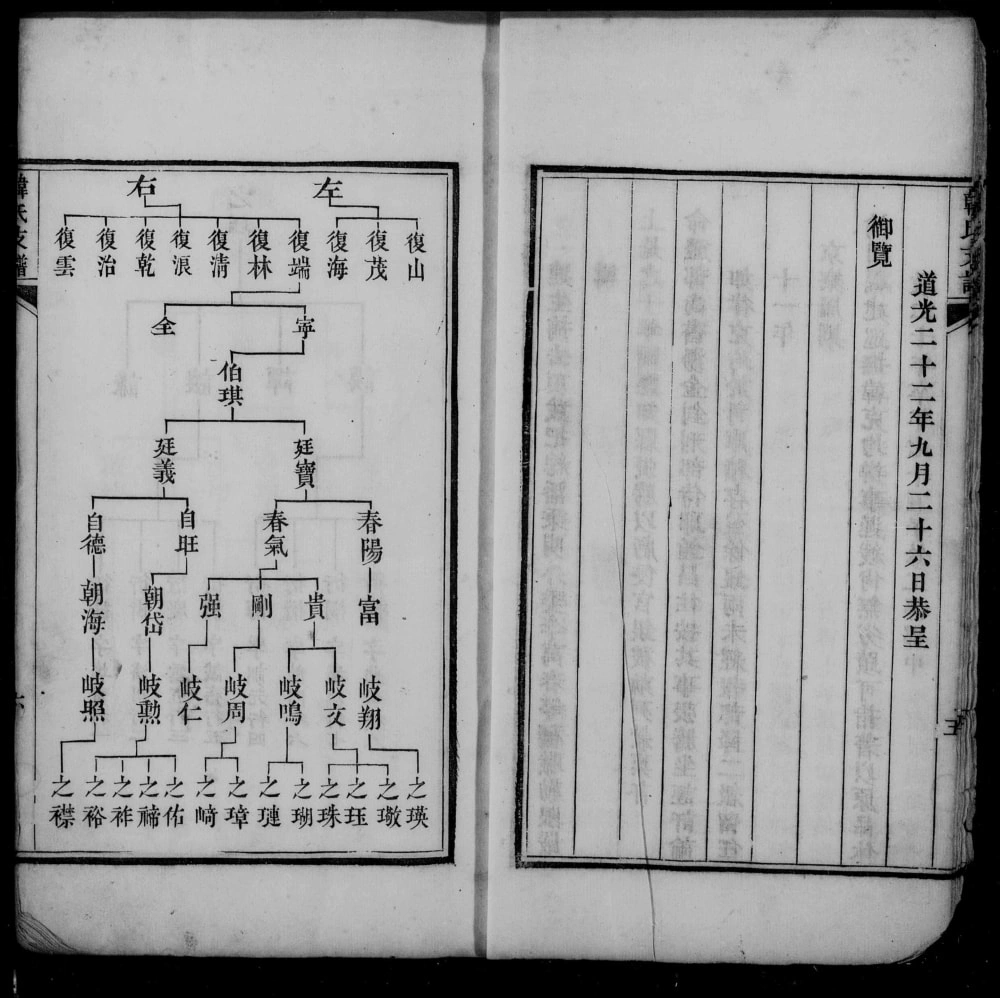 道光二十二年九月二十六日恭呈
御覽
左
右
復山
復茂
復海
復端
復林
復清
復浪
復乾
復治
復雲
寧
全
伯琪
廷寶
廷義
春陽
春氣
自旺
自德
富
貴
剛
强
朝岱
朝海
岐翔
岐文
岐鳴
岐周
岐仁
岐勲
岐照
之瑛
之璥
之珏
之珠
之瑚
之璉
之璋
之崎
之佑
之禘
之祚
之裕
之襟
韓氏支譜
六